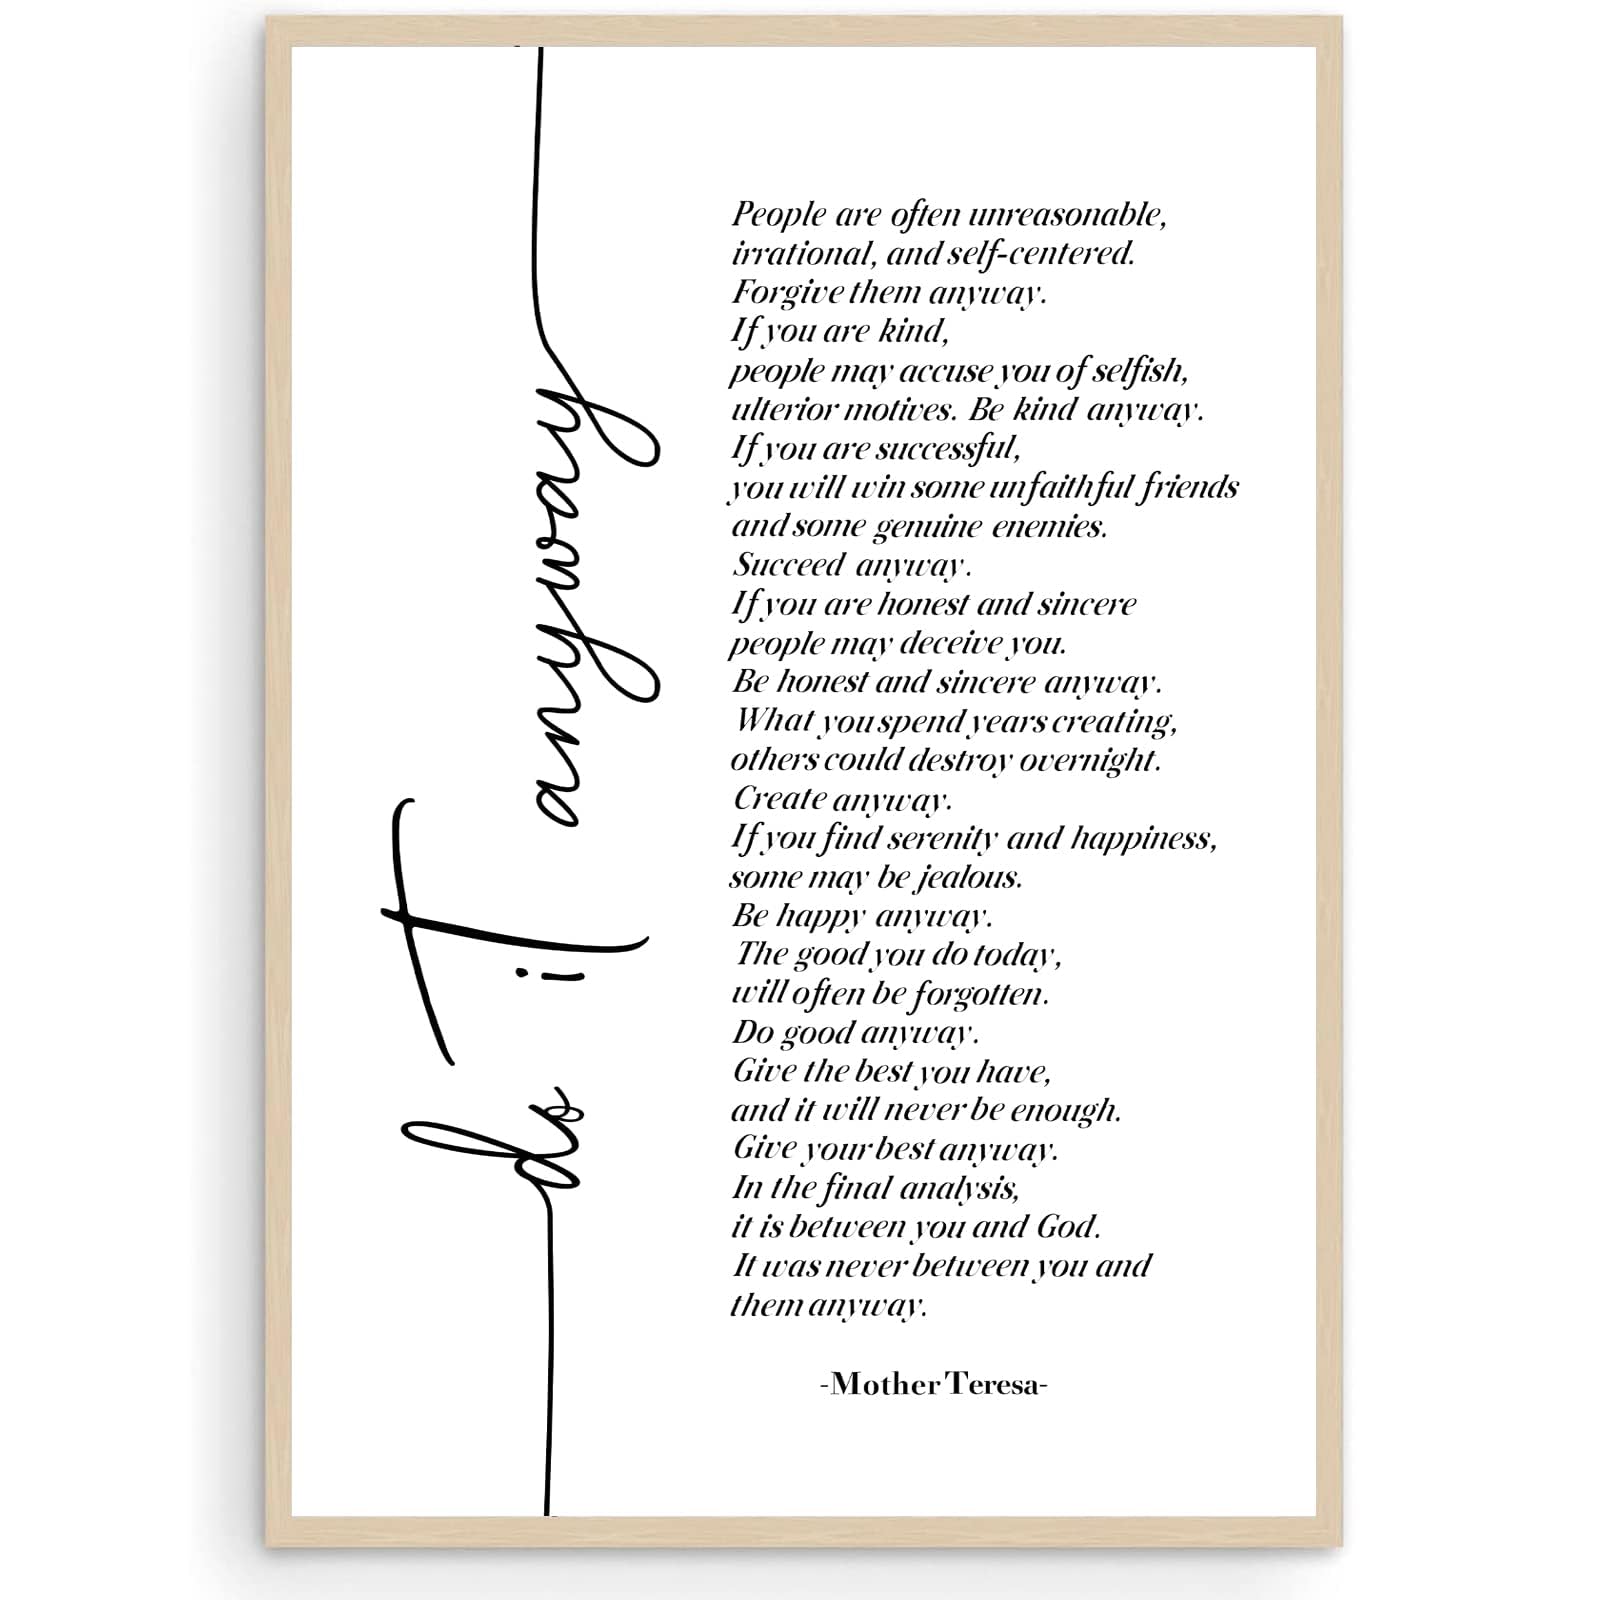 do it anyway
People are often unreasonable,
irrational, and self-centered.
Forgive them anyway.
If you are kind,
people may accuse you of selfish,
ulterior motives. Be kind anyway.
If you are successful,
you will win some unfaithful friends
and some genuine enemies.
Succeed anyway.
If you are honest and sincere
people may deceive you.
Be honest and sincere anyway.
What you spend years creating,
others could destroy overnight.
Create anyway.
If you find serenity and happiness,
some may be jealous.
Be happy anyway.
The good you do today,
will often be forgotten.
Do good anyway.
Give the best you have,
and it will never be enough.
Give your best anyway.
In the final analysis,
it is between you and God.
It was never between you and
them anyway.
-Mother Teresa-